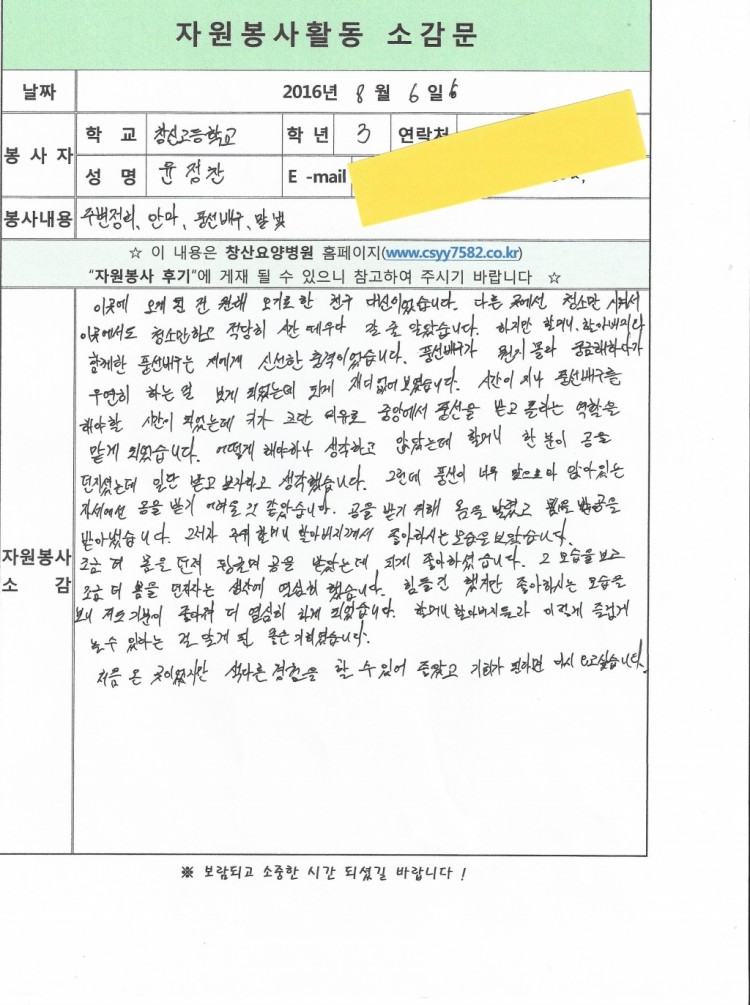 자원봉사활동 소감문
날짜 2016년 8 월 6 일
봉사자 학 교 창신고등학교 학 년 3 연락처
성 명 윤정찬 E -mail
봉사내용 주변정리, 안마, 풍선배구, 말벗
☆ 이 내용은 창산요양병원 홈페이지(www.csyy7582.co.kr)
“자원봉사 후기”에 게재 될 수 있으니 참고하여 주시기 바랍니다 ☆
이곳에 오게 된 건 원래 오기로 한 친구 대신이었습니다. 다른 곳에선 청소만 시켜서
이곳에서도 청소만하고 적당히 시간 때우다 갈 줄 알았습니다. 하지만 할머니, 할아버지와
함께한 풍선배구는 저에게 신선한 충격이었습니다. 풍선배구가 뭔지 몰라 궁금해하다가
우연히 하는 걸 보게 되었는데 되게 재미없어 보였습니다. 시간이 지나 풍선배구를
해야할 시간이 되었는데 키가 크단 이유로 중앙에서 풍선을 받고 올리는 역할을
맡게 되었습니다. 어떻게 해야하나 생각하고 앉았는데 할머니 한 분이 공을
던지셨는데 일단 받고 보자하고 생각했습니다. 그런데 풍선이 너무 앞으로와 앉아있는
자세에선 공을 받기 어려울것 같았습니다. 공을 받기 위해 몸을 날렸고 공을
받아냈습니다. 그러자 주위 할머니 할아버지께서 좋아하시는 모습을 보았습니다.
조금 더 몸을 던져 뒹굴며 공을 받았는데 되게 좋아하셨습니다. 그 모습을 보고
조금 더 몸을 던지자는 생각에 열심히 했습니다. 힘들긴 했지만 좋아하시는 모습을
보니 저도 기분이 좋아져 더 열심히 하게 되었습니다. 할머니 할아버지들과 이렇게 즐겁게
놀수 있다는 걸 알게 된 좋은 기회였습니다.
처음 온 곳이었지만 색다른 경험을 할 수 있어 좋았고 기회가 된다면 다시 오고싶습니다.
자원봉사
소 감
※ 보람되고 소중한 시간 되셨길 바랍니다 !